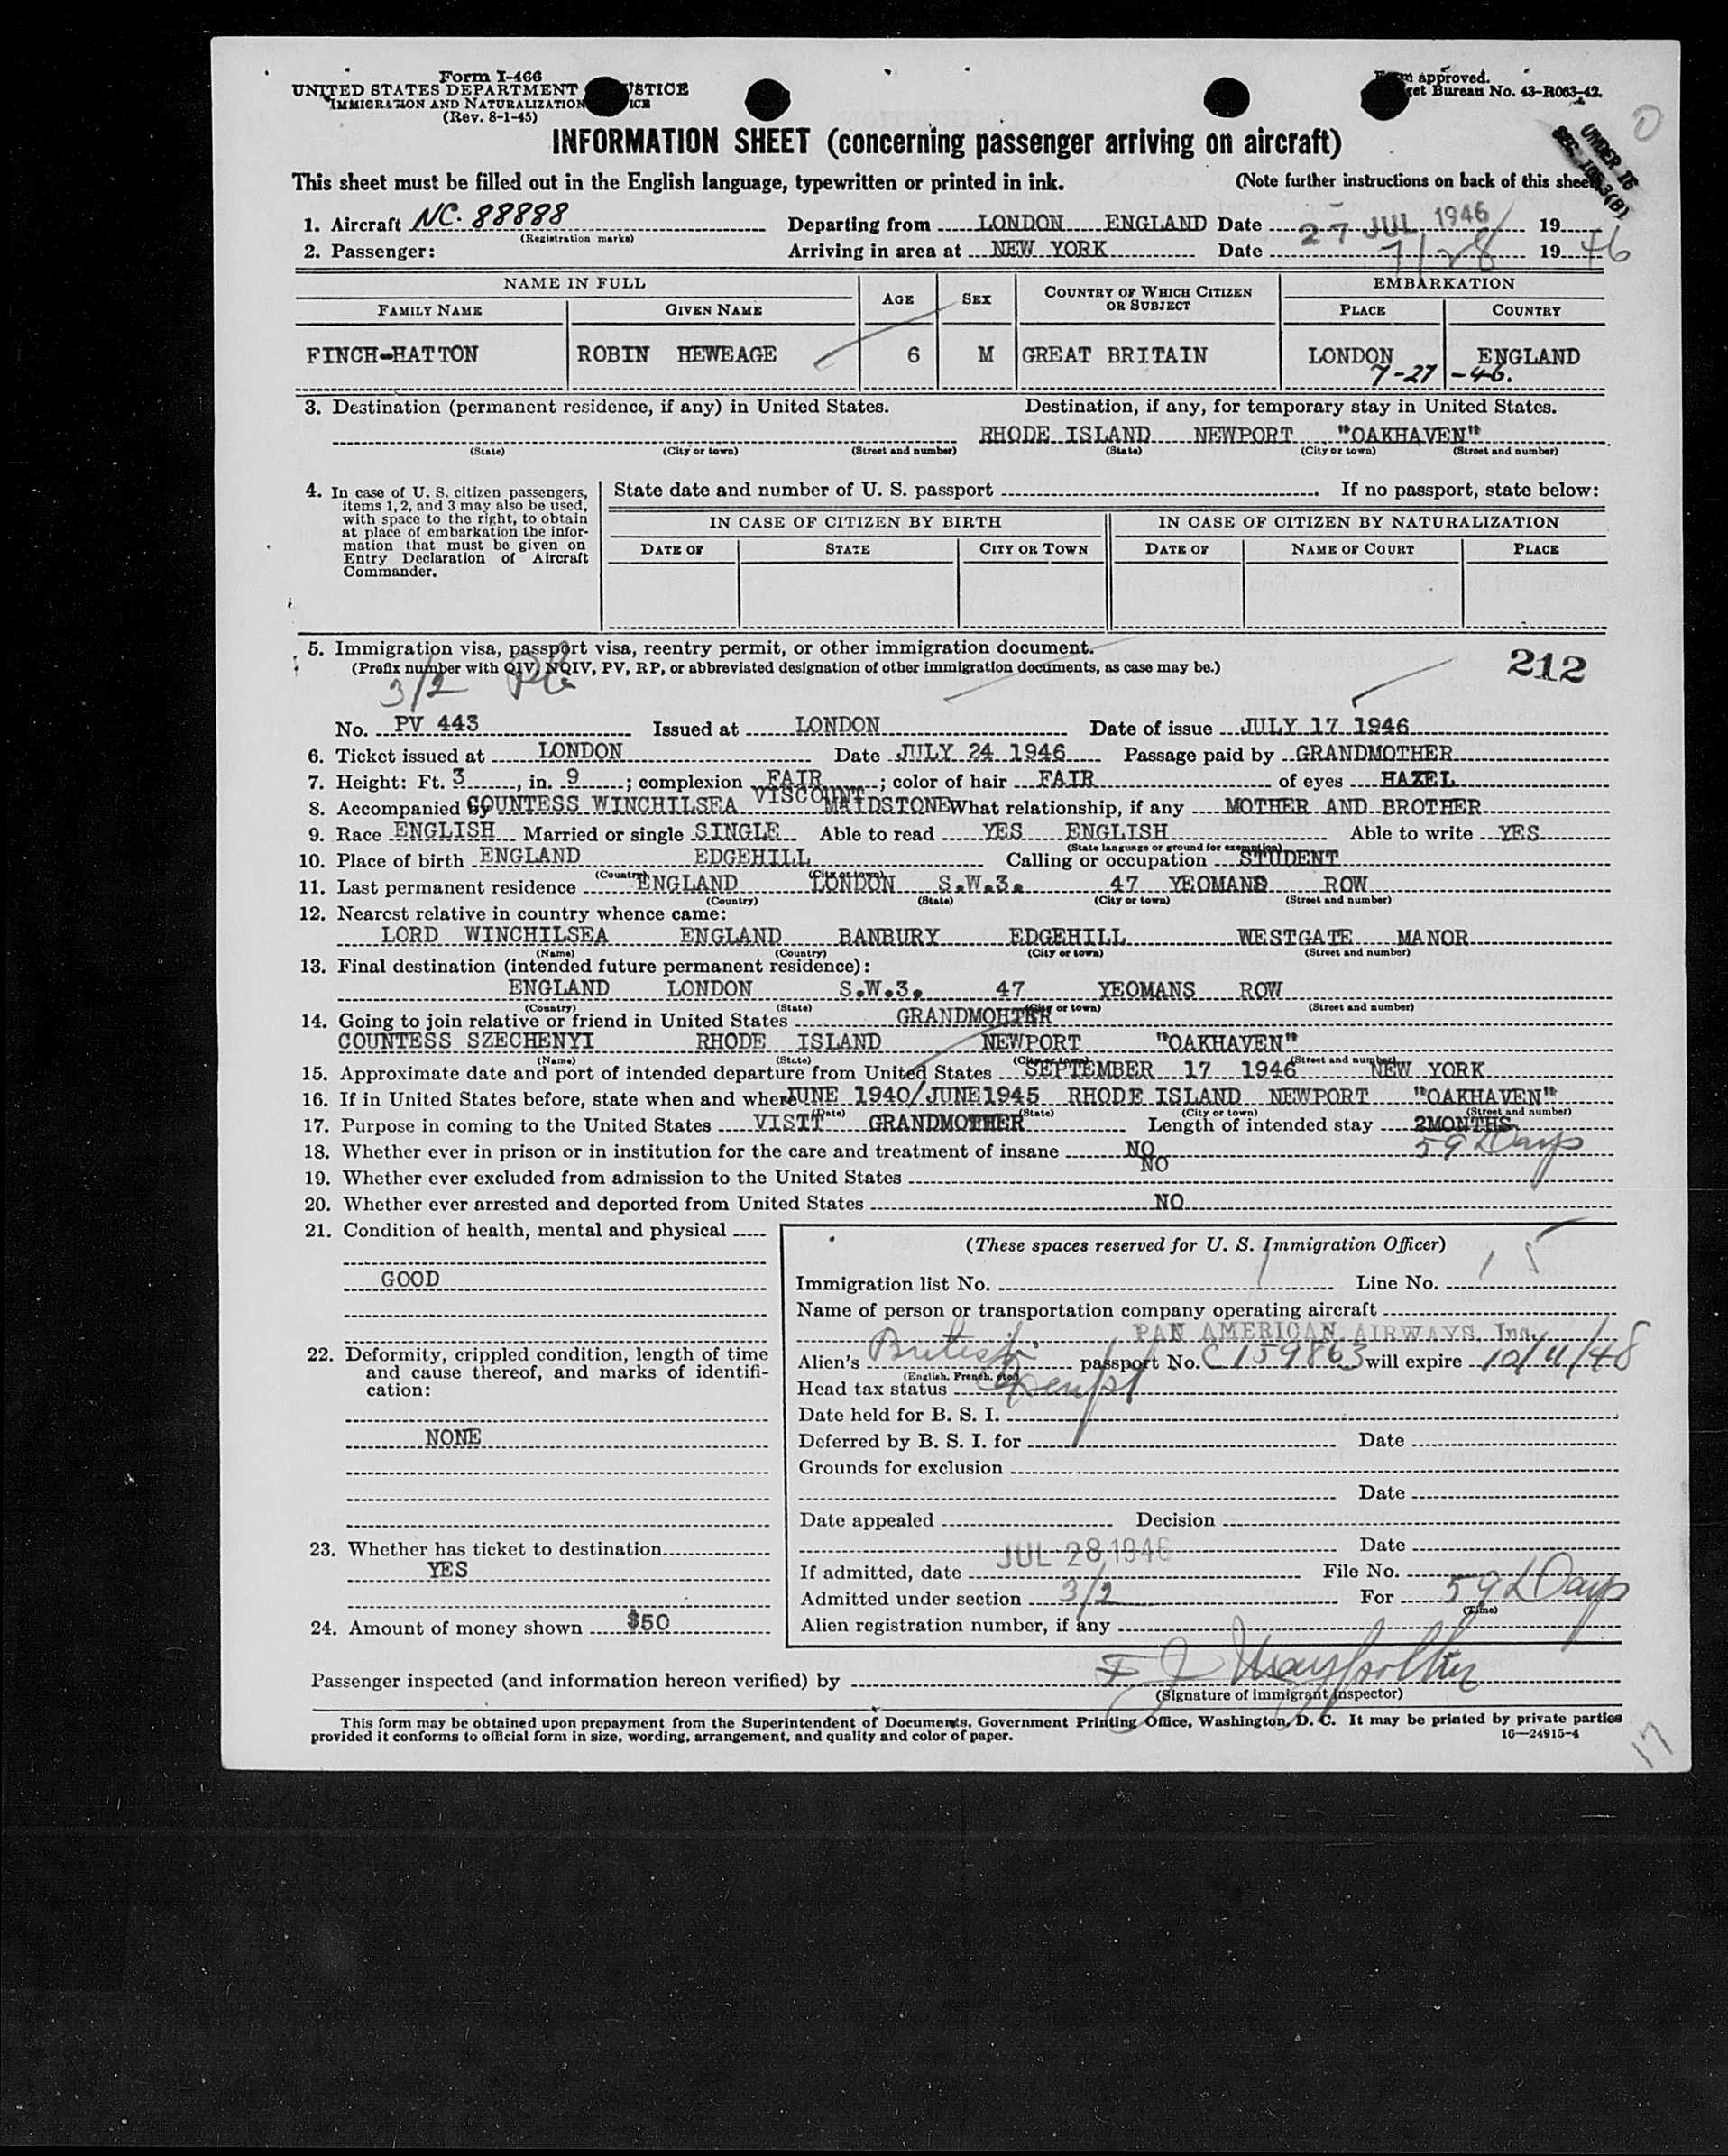 Form I-466
UNITED STATES DEPARTMENT JUSTICE
IMMIGRATION AND NATURALIZATION
(Rev. 8-1-45)
Form approved.
Budget Bureau No. 43-R063-42.
0
UNDER 16
SEC. 105.3(B)
INFORMATION SHEET (concerning passenger arriving on aircraft)
This sheet must be filled out in the English language, typewritten or printed in ink. (Note further instructions on back of this sheet
1. Aircraft NC. 88888 Departing from LONDON ENGLAND Date 27 JUL 1946 19
(Registration marks)
2. Passenger: Arriving in area at NEW YORK Date 7/28 1946
NAME IN FULL AGE SEX COUNTRY OF WHICH CITIZEN OR SUBJECT EMBARKATION
FAMILY NAME GIVEN NAME PLACE COUNTRY
FINCH-HATTON ROBIN HEWEAGE 6 M GREAT BRITAIN LONDON ENGLAND
7-27-46.
3. Destination (permanent residence, if any) in United States. Destination, if any, for temporary stay in United States.
RHODE ISLAND NEWPORT "OAKHAVEN"
(State) (City or town) (Street and number) (State) (City or town) (Street and number)
4. In case of U. S. citizen passengers,
items 1, 2, and 3 may also be used,
with space to the right, to obtain
at place of embarkation the infor-
mation that must be given on
Entry Declaration of Aircraft
Commander.
State date and number of U. S. passport If no passport, state below:
IN CASE OF CITIZEN BY BIRTH IN CASE OF CITIZEN BY NATURALIZATION
DATE OF STATE CITY OR TOWN DATE OF NAME OF COURT PLACE
5. Immigration visa, passport visa, reentry permit, or other immigration document.
(Prefix number with QIV, NQIV, PV, RP, or abbreviated designation of other immigration documents, as case may be.) 212
3/2
No. PV 443 Issued at LONDON Date of issue JULY 17 1946
6. Ticket issued at LONDON Date JULY 24 1946 Passage paid by GRANDMOTHER
7. Height: Ft. 3, in. 9; complexion FAIR; color of hair FAIR of eyes HAZEL
8. Accompanied by COUNTESS WINCHILSEA VISCOUNT MAIDSTONE What relationship, if any MOTHER AND BROTHER
9. Race ENGLISH Married or single SINGLE Able to read YES ENGLISH Able to write YES
(State language or ground for exemption)
10. Place of birth ENGLAND EDGEHILL Calling or occupation STUDENT
(Country) (City or town)
11. Last permanent residence ENGLAND LONDON S.W.3. 47 YEOMANS ROW
(Country) (State) (City or town) (Street and number)
12. Nearest relative in country whence came:
LORD WINCHILSEA ENGLAND BANBURY EDGEHILL WESTGATE MANOR
(Name) (Country) (City or town) (Street and number)
13. Final destination (intended future permanent residence):
ENGLAND LONDON S.W.3. 47 YEOMANS ROW
(Country) (State) (City or town) (Street and number)
14. Going to join relative or friend in United States GRANDMOHTER
COUNTESS SZECHENYI RHODE ISLAND NEWPORT "OAKHAVEN"
(Name) (State) (City or town) (Street and number)
15. Approximate date and port of intended departure from United States SEPTEMBER 17 1946 NEW YORK
16. If in United States before, state when and where JUNE 1940/JUNE1945 RHODE ISLAND NEWPORT "OAKHAVEN"
(Date) (State) (City or town) (Street and number)
17. Purpose in coming to the United States VISIT GRANDMOTHER Length of intended stay 2MONTHS
59 Days
18. Whether ever in prison or in institution for the care and treatment of insane NO
19. Whether ever excluded from admission to the United States NO
20. Whether ever arrested and deported from United States NO
21. Condition of health, mental and physical
GOOD
22. Deformity, crippled condition, length of time
and cause thereof, and marks of identifi-
cation:
NONE
23. Whether has ticket to destination
YES
24. Amount of money shown $50
(These spaces reserved for U. S. Immigration Officer)
Immigration list No. 1 Line No. 15
Name of person or transportation company operating aircraft
PAN AMERICAN AIRWAYS, Inc.
Alien's British passport No. C 159863 will expire 10/11/48
(English, French, etc.)
Head tax status Exempt
Date held for B. S. I.
Deferred by B. S. I. for Date
Grounds for exclusion
Date
Date appealed Decision
Date
If admitted, date JUL 28 1946 File No.
Admitted under section 3/2 For 59 Days
(Time)
Alien registration number, if any
Passenger inspected (and information hereon verified) by
(Signature of immigrant inspector)
This form may be obtained upon prepayment from the Superintendent of Documents, Government Printing Office, Washington, D. C. It may be printed by private parties
provided it conforms to official form in size, wording, arrangement, and quality and color of paper. 16—24915-4
17